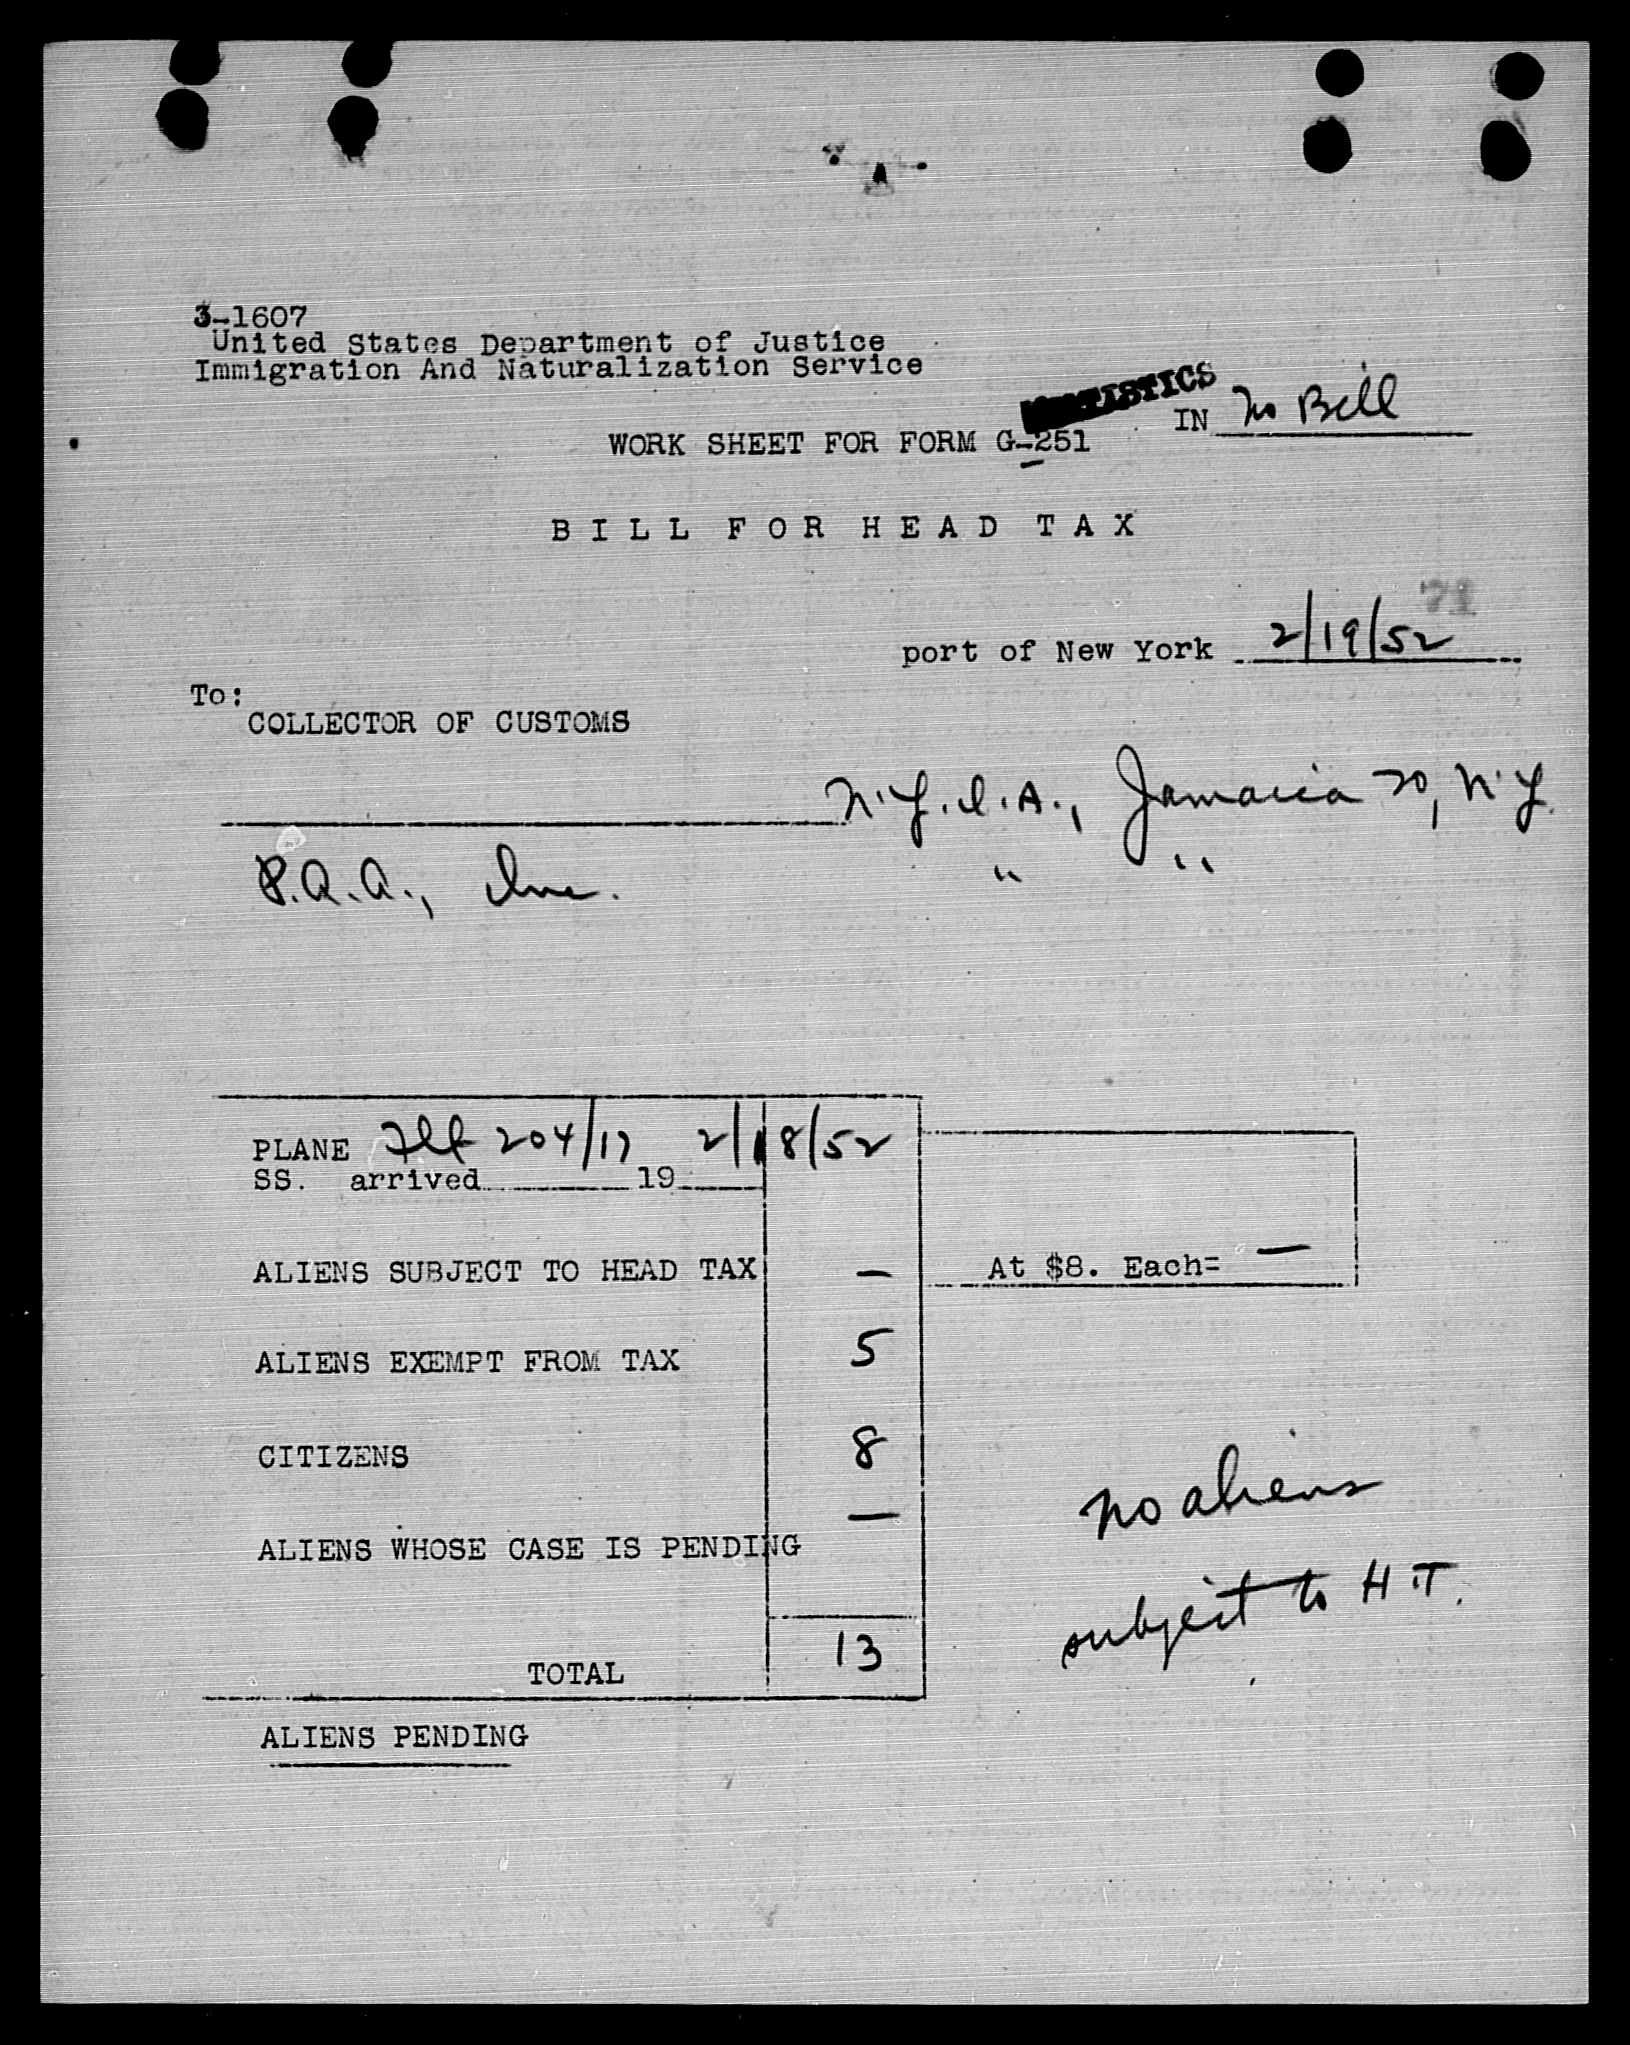 3-1607
United States Department of Justice
Immigration And Naturalization Service
STATISTICS
IN No Bill
WORK SHEET FOR FORM G-251
BILL FOR HEAD TAX
71
port of New York 2/19/52
To:
COLLECTOR OF CUSTOMS
N.Y.I.A., Jamaica 30, N.Y.
P.A.A., Inc. " "
PLANE Flt 204/17 2/18/52
SS. arrived 19
ALIENS SUBJECT TO HEAD TAX — At $8. Each= —
ALIENS EXEMPT FROM TAX 5
CITIZENS 8
ALIENS WHOSE CASE IS PENDING —
no aliens
subject to H T.
TOTAL 13
ALIENS PENDING